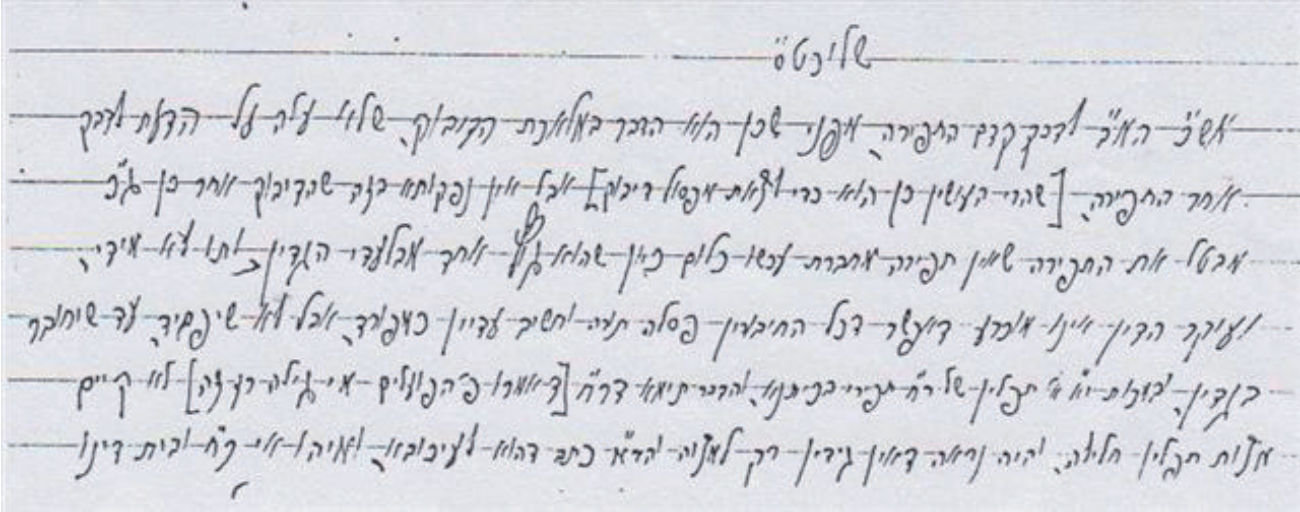 שלוכט"ס
מש"כ המ"ב לדבק קדם התפירה, מפני שכן הוא הדבר במלאכת הדיבוק, שלא עלה על הדעת לדבק
אחר התפירה, [שהרי העושין כן הוא כדי לצאת מפסול דיבוק] אבל אין נפקותא בזה שהדיבוק אחר כן ג"כ
מבטל את התפירה שאין תפירה מחברת עכשו כלום כיון שהוא גוף אחד מבלעדי הגדין ותו לא מידי,
ועיקר הדין אינו מוכרע דאפשר דכל החיבורין פסלה תורה וחשיב עדיין כמפורד, אבל לא שיפסיד, עד שיחובר
בגדין, ובמנחות תפלין של תפרי בכיתנא, והדבר תימא [ד אמרו כ הפועלים מי גילה רז זה] לא קיים
מצות תפלין חלילה, והיה נראה דאין גידין רק למצוה כתב דהוא לעיכובא, ומיהו אי ובית דינו